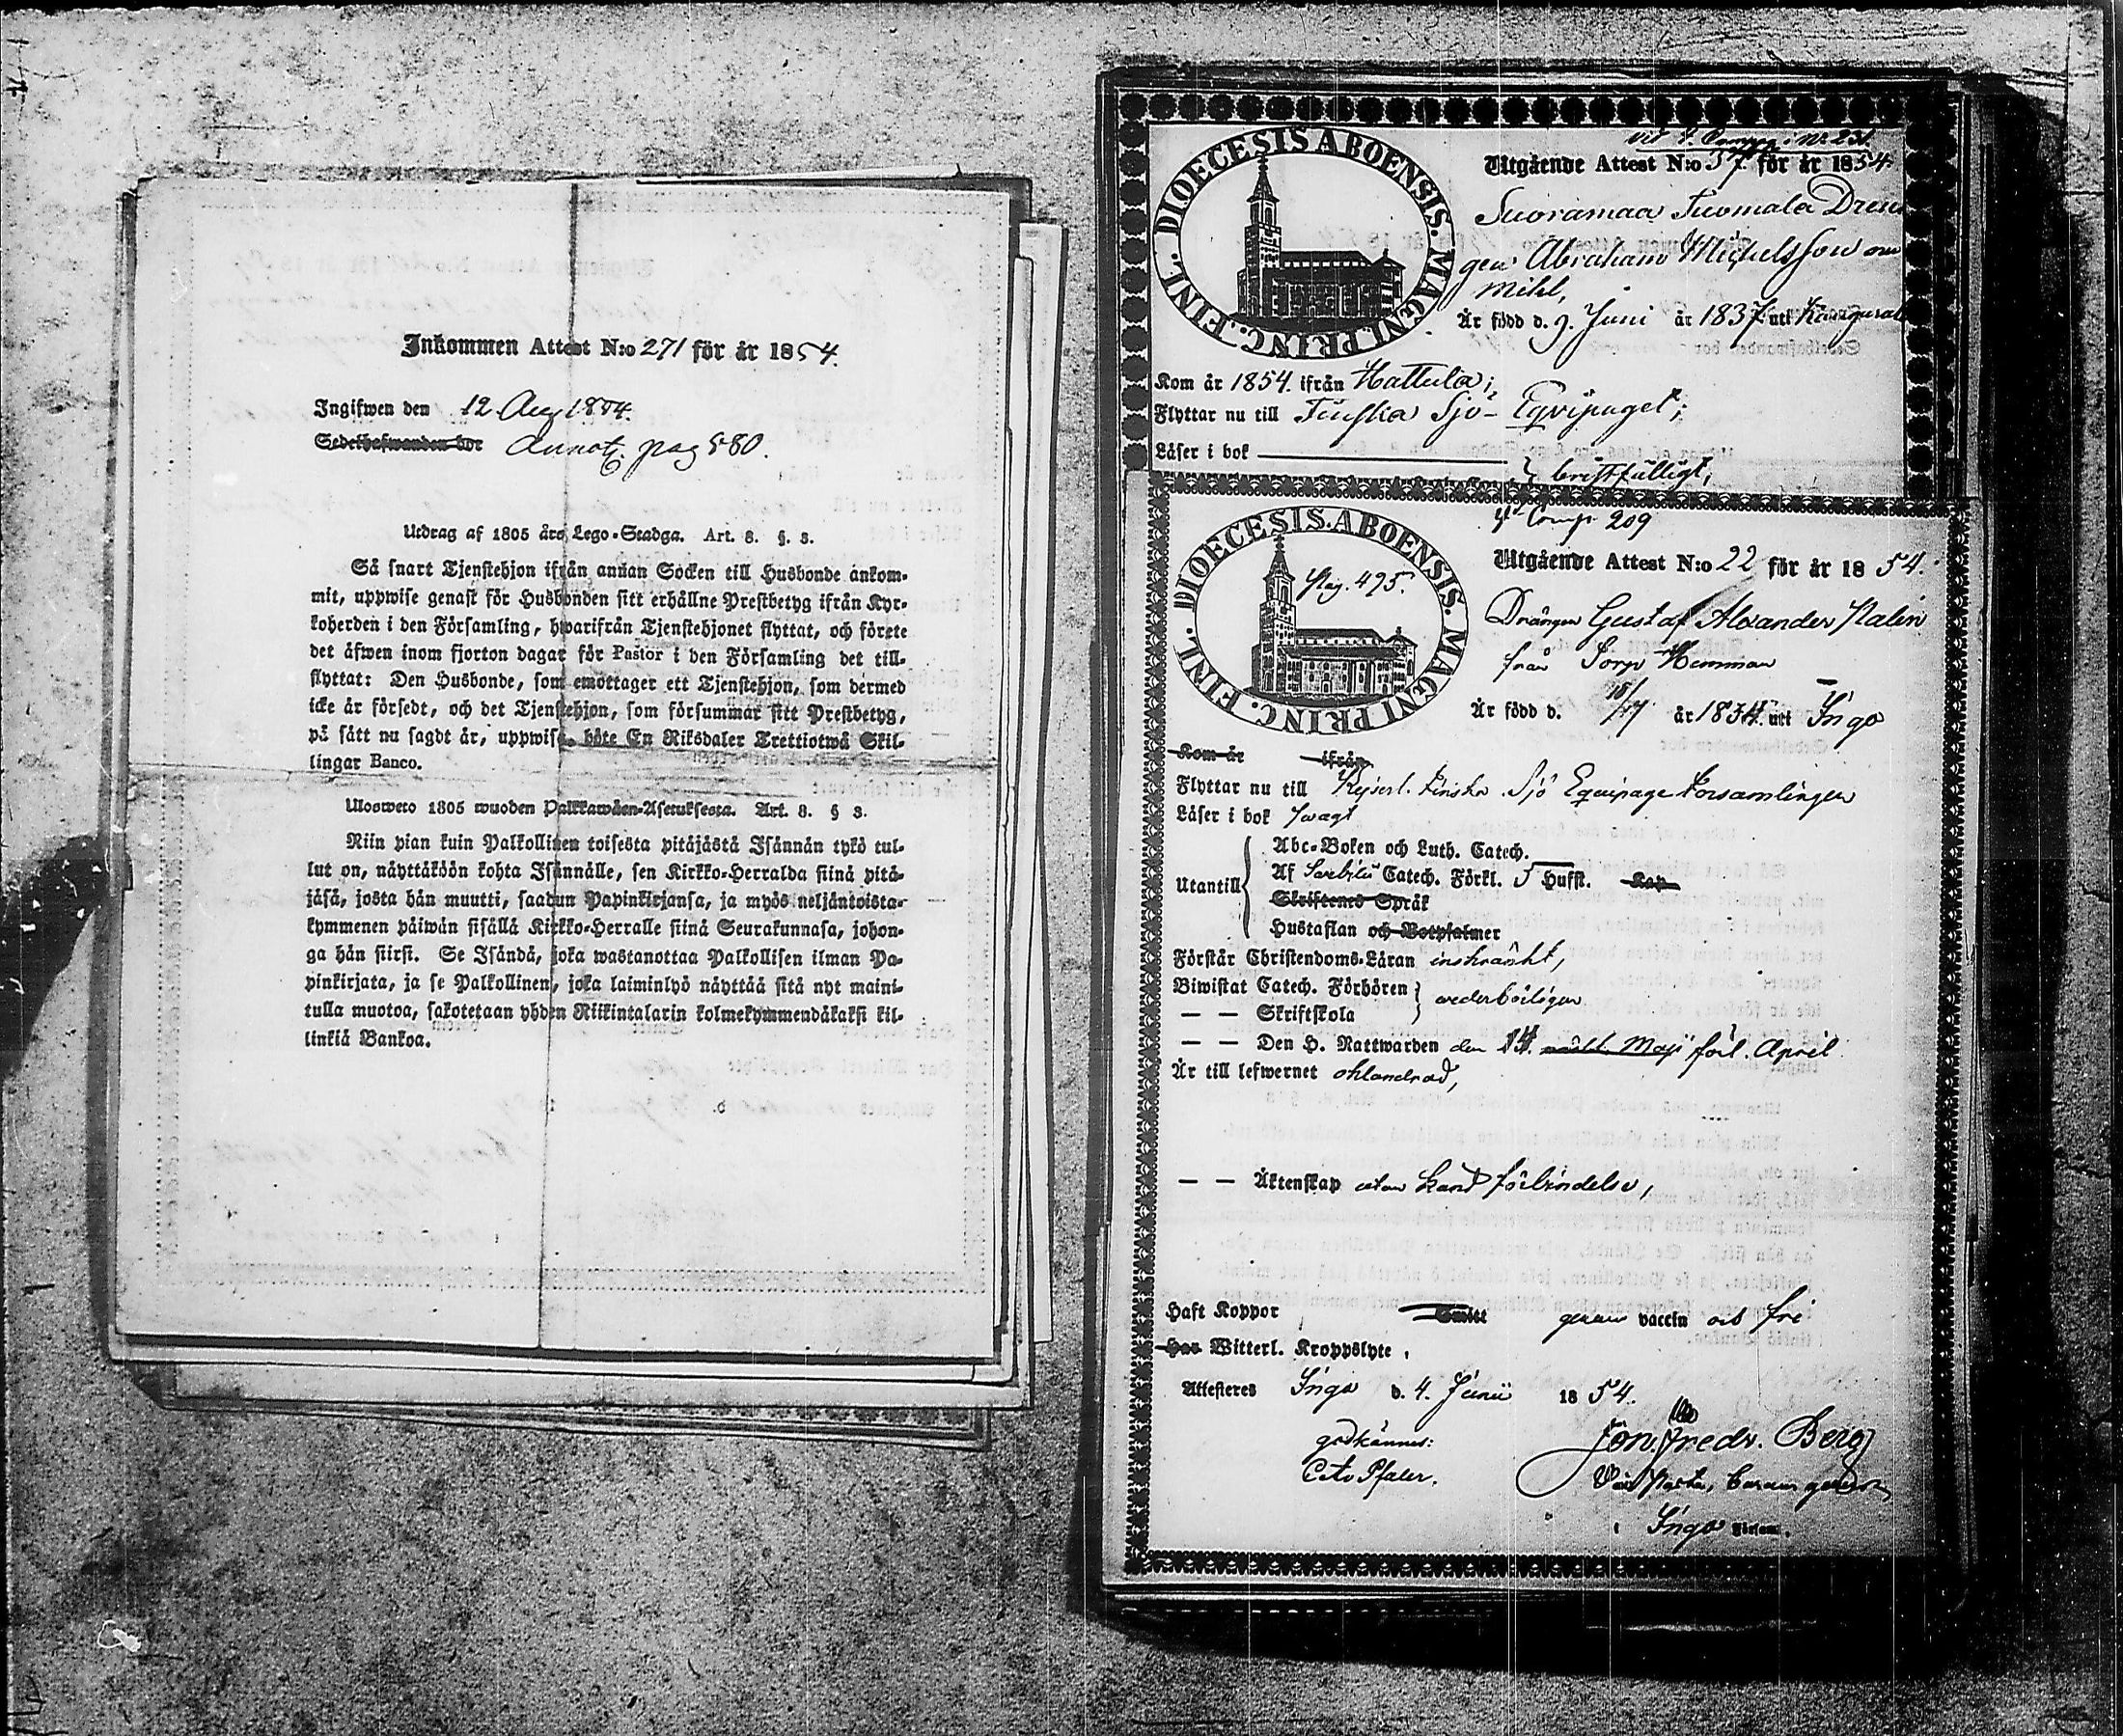 Inkommen Attest N:o 271 för år 1854.
Ingifwen den 12 Aug 1854.
Sedelhafwanden bor Annot. pag 580.
Utdrag af 1805 års Lego-Stadga. Art. 8. §. 3.
Så snart Tjenstehjon ifrån annan Socken till Husbonde ankom-
mit, uppwise genast för Husbonden sitt erhållne Prestbetyg ifrån Kyr-
koherden i den Församling, hwarifrån Tjenstehjonet flyttat, och förete
det äfwen inom fjorton dagar för Pastor i den Församling det till-
flyttat: Den Husbonde, som emottager ett Tjenstehjon, som dermed
icke är försedt, och det Tjenstehjon, som försummar sitt Prestbetyg,
på sätt nu sagdt är, uppwisa, böte En Riksdaler Trettiotwå Skil-
lingar Banco.
Ulosweto 1805 wuoden Palkkawäen-Asetuksesta. Art. 8. § 3.
Niin pian kuin Palkollinen toisesta pitäjästä Isännän tykö tul-
lut on, näyttäköön kohta Isännälle, sen Kirkko-Herralda siinä pitä-
jäsä, josta hän muutti, saadun Papinkirjansa, ja myös neljäntoista-
kymmenen päiwän sisällä Kirkko-Herralle siinä Seurakunnasa, johon-
ga hän siirsi. Se Isändä, joka wastanottaa Palkollisen ilman Pa-
pinkirjata, ja se Palkollinen, joka laiminlyö näyttää sitä nyt maini-
tulla muotoa, sakotetaan yhden Riikintalarin kolmekymmendäkaksi kil-
linkiä Bankoa.
DIOECESIS ABOENSIS. MAGNI PRINC. FINL.
N:r 231.
Utgående Attest N:o 57 för år 1854.
Suoramaa Tuomala Dren
gen Abraham Michelsson
Mihl,
Är född d. 9. Juni år 1837 uti Kangasal
Kom år 1854 ifrån Hattula;
Flyttar nu till Finska Sjö-Eqvipaget;
Läser i bok
bristfälligt,
4de Comp. 209
DIOECESIS ABOENSIS. MAGNI PRINC. FINL.
Pag. 495.
Utgående Attest N:o 22 för år 1854.
Drängen Gustaf Alexander Malin
från Torp Hemman
Är född d. år 1834. uti Ingo
Kom år ifrån
Flyttar nu till Kejserl. Finska Sjö Equipage Forsamlingen
Läser i bok swagt
Abc-Boken och Luth. Catech.
Utantill
Af Svebilii Catech. Förkl. 3 Hufst. Kap
Skriftenes Språk
Hustaflan och Botpsalmer
Förstår Christendoms-Läran inskränkt,
Biwistat Catech. Förhören
wederbörligen
— — Skriftskola
— — Den H. Nattwarden den 14. Maji förl. April
Är till lefwernet oklandrad,
— — Äktenskap utan känd förbindelse,
Haft Koppor Smitt genom vaccin är fri
Har Witterl. Kroppslyte
Attesteres Ingo d. 4. Junii 1854.
godkännes:
Cito Pfaler.
Jon. Fredr. Berg
Vice Pastor,
i Ingo Försam.